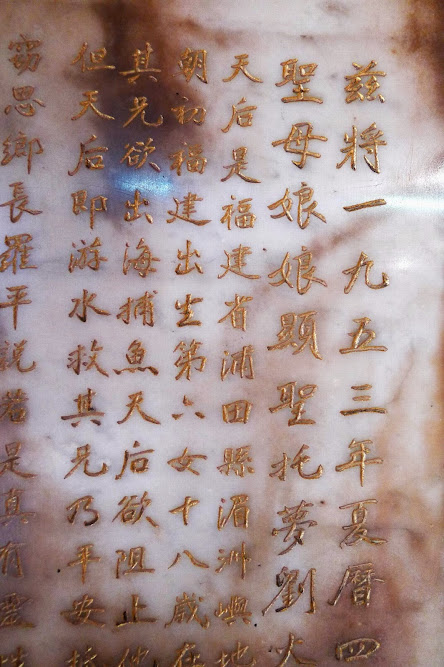 茲將一九五三年夏曆四
聖母娘娘顕聖托夢劉火
天后是福建省浦田縣湄洲嶼地
朝初福建出生第六女十八歲在
其兄欲出海捕魚天后欲阻止他
但天后即游水救其兄乃平安
窃思鄉長羅平說若是真有靈